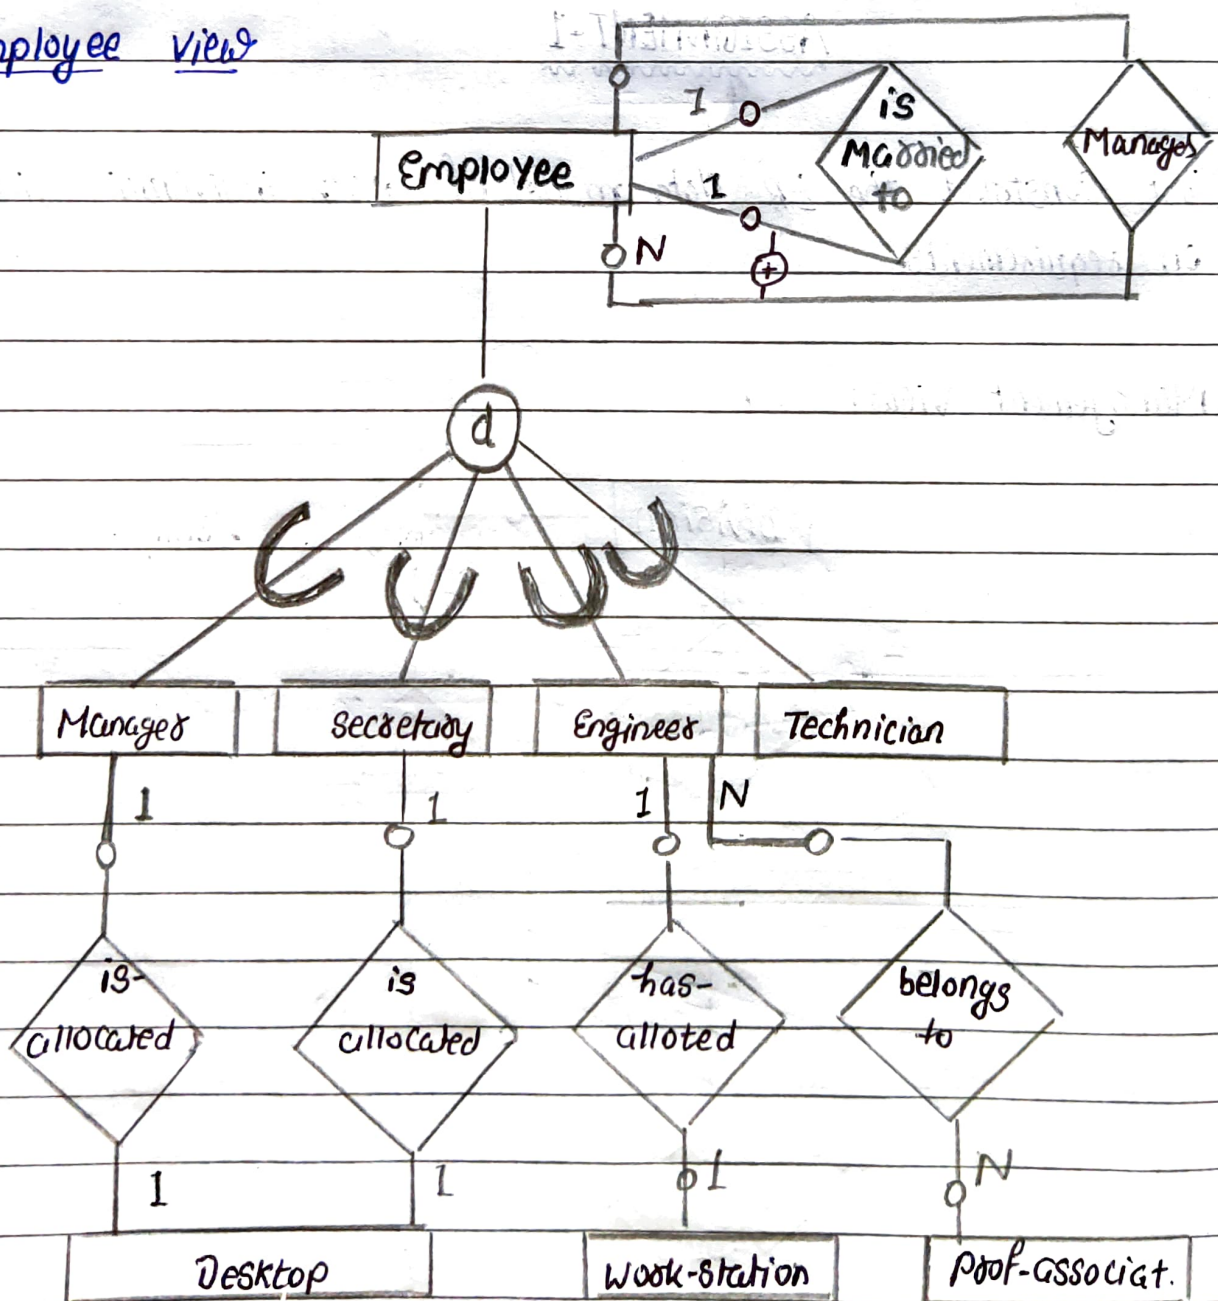 mployee view
1
is
Married
to
Manages
Employee
1
N
+
d
Manager
Secretary
Engineer
Technician
1
1
1
N
is-
allocated
is
allocated
has-
alloted
belongs
to
1
1
1
N
Desktop
Work-station
Prof-associat.